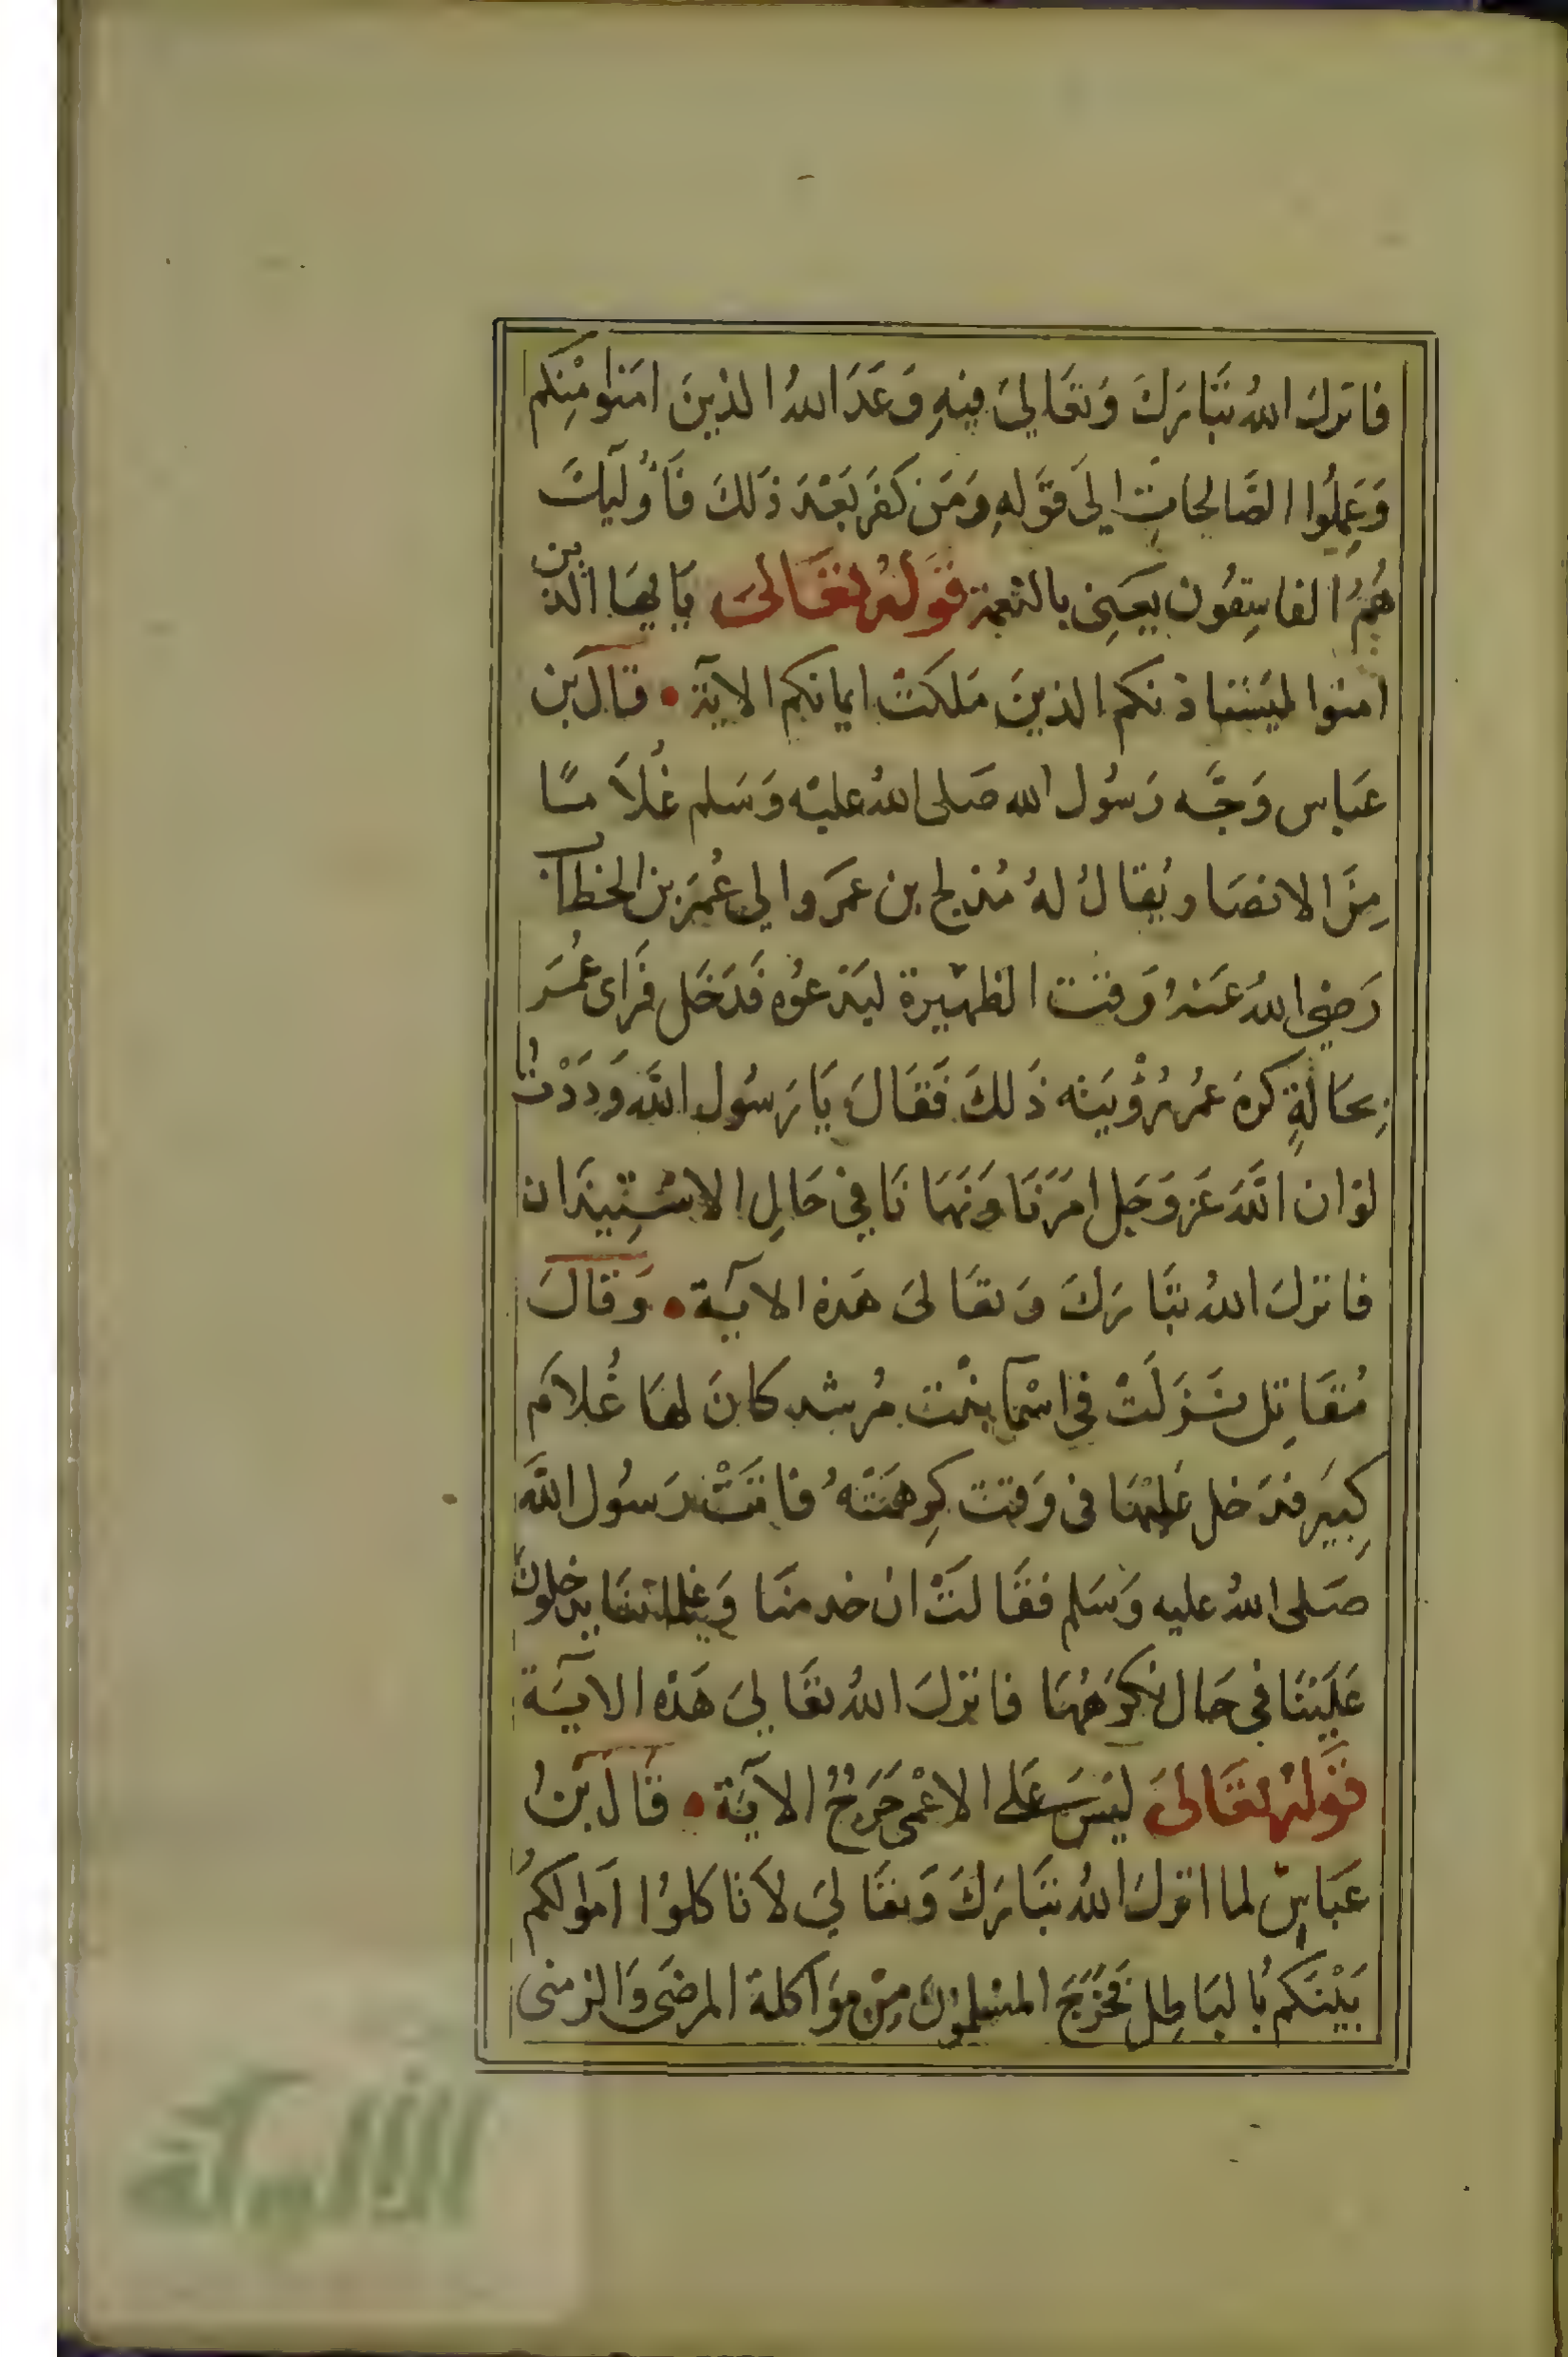 فانزل الله تَبَارَكَ وَتعَاليَ فيهِ وَعَدَ اللهُ الذينَ امَنوا مِنْكم
وَعَمِلُوا الصَّالحاتِ اليَ قَوَلهِ وَمَن كفَر بَعْدَ ذَلكَ فَأُولَيكَ
هُمُ الفاسِقُون يعَنِى بالنعمة قَولهُ تعَالىَ يَايهَا الذين
امنوا ليَستاذنكم الذينَ مَلكتْ ايمانكم الآية • قال بن
عَباس وَجَّه رَسُول الله صَلى اللهُ عليْه وَسَلم غُلاَمًا
مِنَ الانصَار يُقالُ لهُ مُدلج بن عمَرو الي عُمَر بن الخطاب
رَضي اللهُ عَنهُ وَقتَ الظهيرة ليَدعوُه فَدَخَل فرَاى عُمَر
بِحَالةٍ كرهَ عمُر رُؤْيَته ذَلكَ فَقَالَ يَا رَسُول اللَّه وَدَدْتُ
لوَ ان اللَّهَ عَز وَجَل امَرَنَا وَنَهَانَا في حَالِ الاستِيذان
فانزلَ اللهُ تبَارَكَ وَتعَالىَ هَذه الايَة • وَقالَ
مُقَاتِل نَزَلَتْ في اسْمَا بنْت مُرشد كانَ لهَا غُلامَ
كِبيَر فدَخل عَليْهَا فى وَقت كِرهَتْهُ فاتَتْ رَسوُل اللَّه
صَلى اللهُ عليه وَسَلم فقَالتْ ان خدمنَا وَغلماننَا يدخلونَ
عَلَيْنَا في حَال نكرَهُهَا فانزلَ اللهُ تعَاليَ هَذه الآيَة
قَولهُ تعَالىَ ليَسَ عَلى الاعْمى حَرَجُ الآيَة • قَالَ بنُ
عَباسٍ لما انزلَ اللهُ تبَارَكَ وَتعَاليَ لاَ تَاكلوُا اَموالكمُ
بَيْنَكم بالبَاطِل تَحَرَّجَ المسْلموُنَ مِنْ موَاكلة المرضَى وَالزمنى
الألوكة